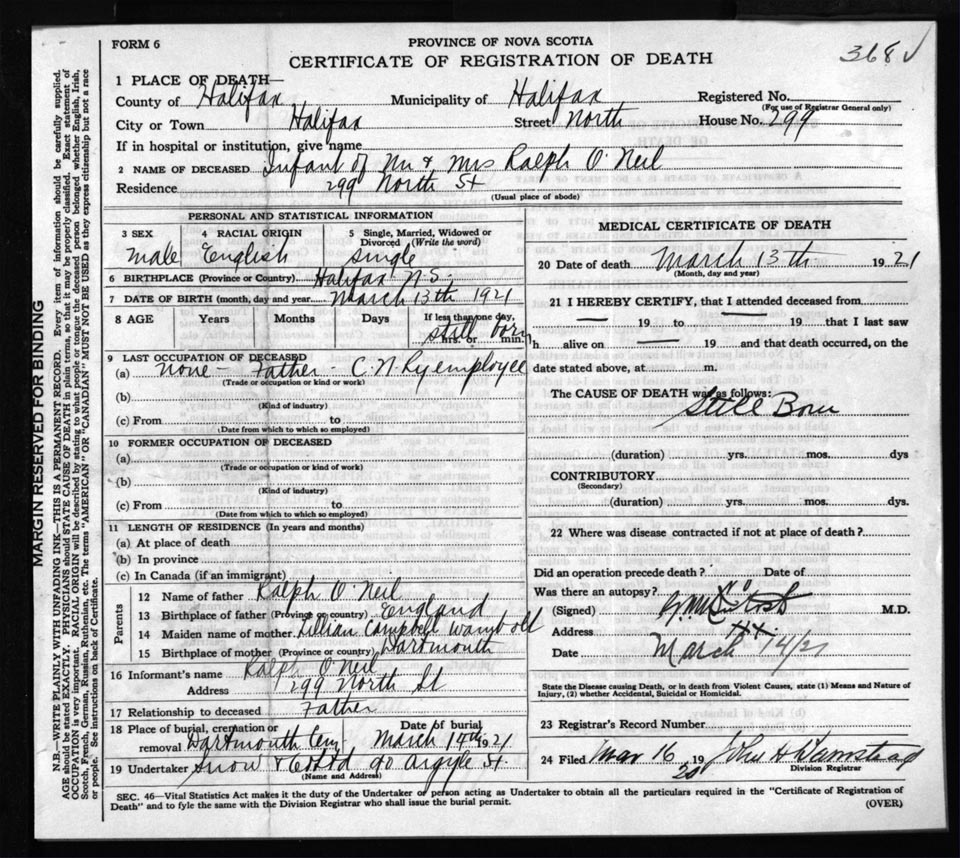 FORM 6
PROVINCE OF NOVA SCOTIA
368 √
CERTIFICATE OF REGISTRATION OF DEATH
1 PLACE OF DEATH—
County of Halifax Municipality of Halifax Registered No.
(For use of Registrar General only)
City or Town Halifax Street North House No. 299
If in hospital or institution, give name
2 NAME OF DECEASED Infant of Mr & Mrs Ralph O'Neil
Residence 299 North St
(Usual place of abode)
PERSONAL AND STATISTICAL INFORMATION
3 SEX 4 RACIAL ORIGIN 5 Single, Married, Widowed or Divorced (Write the word)
Male English Single
6 BIRTHPLACE (Province or Country) Halifax N.S.
7 DATE OF BIRTH (month, day and year) March 13th 1921
8 AGE Years Months Days If less than one day, hrs. or min.
still born
9 LAST OCCUPATION OF DECEASED
(a) None - Father - C.N. Ry employee
(Trade or occupation or kind of work)
(b)
(Kind of industry)
(c) From to
(Date from which to which so employed)
10 FORMER OCCUPATION OF DECEASED
(a)
(Trade or occupation or kind of work)
(b)
(Kind of industry)
(c) From to
(Date from which to which so employed)
11 LENGTH OF RESIDENCE (In years and months)
(a) At place of death
(b) In province
(c) In Canada (if an immigrant)
Parents
12 Name of father Ralph O'Neil
13 Birthplace of father (Province or country) England
14 Maiden name of mother Lillian Campbell Wambolt
15 Birthplace of mother (Province or country) Dartmouth
16 Informant's name Ralph O'Neil
Address 299 North St
17 Relationship to deceased Father
18 Place of burial, cremation or removal Dartmouth Cem Date of burial March 14th 1921
19 Undertaker Snow & 90 Argyle St.
(Name and Address)
MEDICAL CERTIFICATE OF DEATH
20 Date of death March 13th 1921
(Month, day and year)
21 I HEREBY CERTIFY, that I attended deceased from
— 19 to — 19 that I last saw
h alive on — 19 and that death occurred, on the
date stated above, at m.
The CAUSE OF DEATH was as follows:
Still Born
(duration) yrs. mos. dys
CONTRIBUTORY
(Secondary)
(duration) yrs. mos. dys.
22 Where was disease contracted if not at place of death?
Did an operation precede death? Date of
Was there an autopsy?
(Signed) M.D.
Address Hx.
Date March 14/21
State the Disease causing Death, or in death from Violent Causes, state (1) Means and Nature of
Injury, (2) whether Accidental, Suicidal or Homicidal.
23 Registrar's Record Number
24 Filed Mar 16 19 20 John H
Division Registrar
SEC. 46—Vital Statistics Act makes it the duty of the Undertaker or person acting as Undertaker to obtain all the particulars required in the "Certificate of Registration of
Death" and to fyle the same with the Division Registrar who shall issue the burial permit.
(OVER)
MARGIN RESERVED FOR BINDING
N.B.—WRITE PLAINLY WITH UNFADING INK—THIS IS A PERMANENT RECORD. Every item of information should be carefully supplied.
AGE should be stated EXACTLY. PHYSICIANS should STATE CAUSE OF DEATH in plain terms, so that it may be properly classified. Exact statement of
OCCUPATION is very important. RACIAL ORIGIN will be described by stating to what people or tongue the deceased person belonged whether English, Irish,
Scotch, French, German, Russian, Ruthenian, etc. The terms "AMERICAN" OR "CANADIAN" MUST NOT BE USED as they express citizenship but not a race
or people. See instructions on back of Certificate.